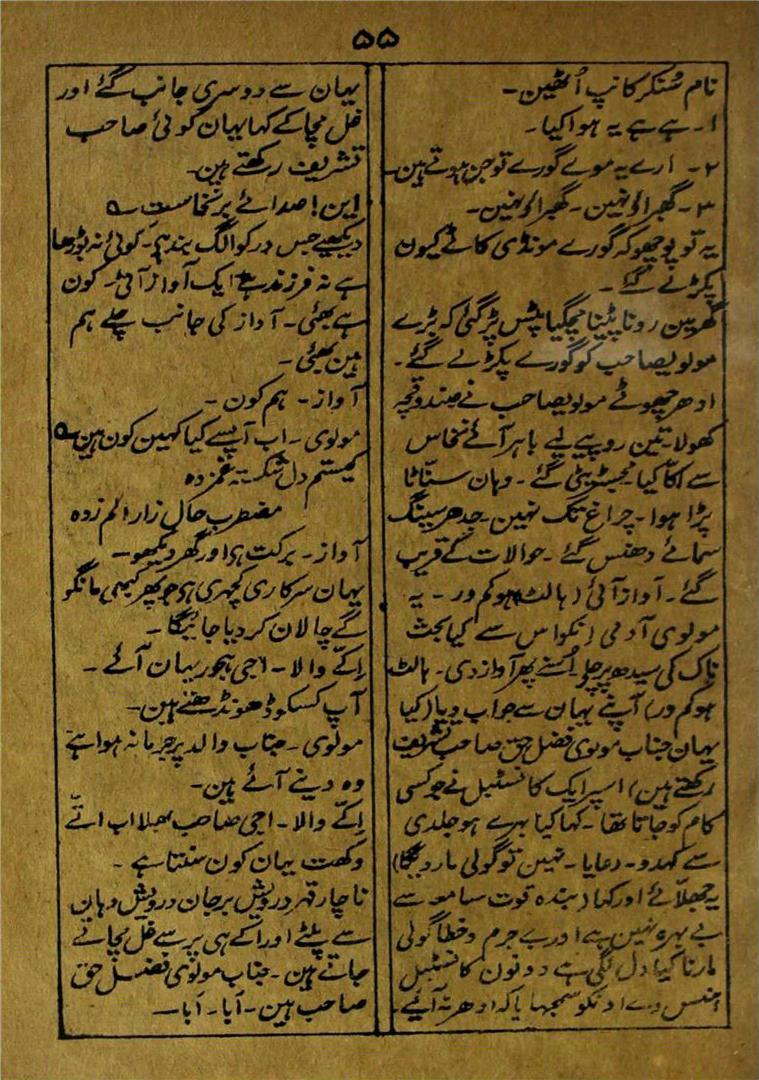 ۵۵
نام سُنکر کانپ اُٹھین۔
۱۔ ہے ہے یہ ہوا کیا۔
۲۔ ارے یہ موے گورے تو جن ہوتے ہین
۳۔ گھبراؤ نہین۔ گھبراؤ نہین۔
یہ تو پوچھو کہ گورے مونڈی کاٹے کیون
پکڑ لے گئے۔
گھر مین رونا پٹینا مچ گیا پٹس پڑ گئی کہ بڑے
مولویصاحب کو گورے پکڑ لے گئے۔
ادھر چھوٹے مولویصاحب نے صندوقچہ
کھولا تین روپیے لیے باہر آئے نخاس
سے اکّا کیا مجسٹریٹی گئے۔ وہان سنّاٹا
پڑا ہوا۔ چراغ تک نہین۔ جدھر سینگ
سمائے دھنس گئے۔ حوالات کے قریب
گئے۔ آواز آئی (ہالٹ ہوکم در۔ یہ
مولوی آدمی انکو اس سے کیا بحث
ناک کی سیدھ پر چلے اُسنے پھر آواز دی۔ ہالٹ
ہوکم در) آپنے یہان سے جواب دیا (کیا
یہان جناب مولوی فضل حق صاحب تشریف
رکھتے ہین) اسپر ایک کانسٹبل نے جو کسی
کام کو جاتا تھا۔ کہا کیا بہرے ہو جلدی
سے کہدو۔ رعایا۔ نہین تو گولی مار دیگا)
یہ جھلّائے اور کہا (بندہ قوت سامعہ سے
بے بہرہ نہین ہے اور بے جرم و خطا گولی
مارنا کیا دل لگی ہے دونون کانسٹبل
ہنس دے اونکو سمجھایا کہ ادھر نہ آیئے۔
یہان سے دوسری جانب گئے اور
غل مچا کے کہا یہان کوئی صاحب
تشریف رکھتے ہین۔
این! صدائے برنخاست ؎
دیکھیے جس در کو الگ بند ہے۔ کوئی نہ بوڑھا
ہے نہ فرزند ہے ایک آواز آئی۔ کون
ہے بھئی۔ آواز کی جانب چلے ہم
ہین بھئی۔
آواز۔ ہم کون۔
مولوی۔ اب آپسے کیا کہین کون ہین ؎
کیستم دل شکستہ غمزدہ
مضطرب حال زار الم زدہ
آواز۔ برکت ہے اور گھر دیکھو۔
یہان سرکاری کچہری ہے جو پھر کبھی مانگو
گے چالان کر دیا جائیگا۔
اِکّے والا۔ اجی ہجور یہان آئے۔
آپ کسکو ڈھونڈھتے ہین۔
مولوی۔ جناب والد پر جرمانہ ہوا ہے
وہ دینے آئے ہین۔
اِکّے والا۔ اجی صاحب بھلا اب اتّے
وکھت یہان کون سنتا ہے۔
ناچار قہر درویش بر جان درویش وہان
سے پلٹے اور اکے ہی پر سے غل مچاتے
جاتے ہین۔ جناب مولوی فضل حق
صاحب ہین۔ آبا۔ آبا۔